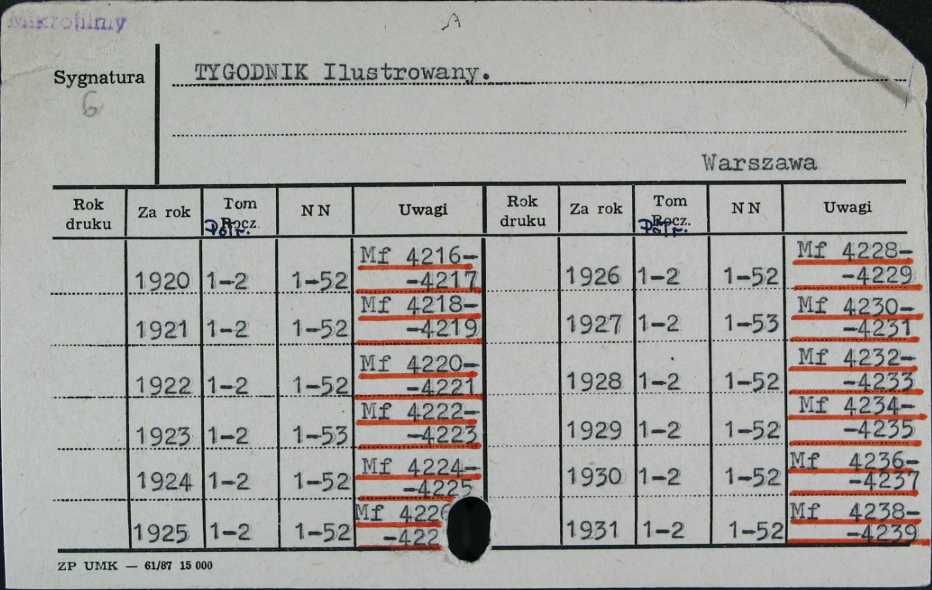 Mikrofilmy
A
Sygnatura TYGODNIK Ilustrowany.
6
Warszawa
Rok druku Za rok Tom Rocz. Półr. NN Uwagi Rok druku Za rok Tom Rocz. Półr. NN Uwagi
1920 1-2 1-52 Mf 4216-
-4217
1926 1-2 1-52 Mf 4228-
-4229
1921 1-2 1-52 Mf 4218-
-4219
1927 1-2 1-53 Mf 4230-
-4231
1922 1-2 1-52 Mf 4220-
-4221
1928 1-2 1-52 Mf 4232-
-4233
1923 1-2 1-53 Mf 4222-
-4223
1929 1-2 1-52 Mf 4234-
-4235
1924 1-2 1-52 Mf 4224-
-4225
1930 1-2 1-52 Mf 4236-
-4237
1925 1-2 1-52 Mf 4226
-422
1931 1-2 1-52 Mf 4238-
-4239
ZP UMK — 61/87 15 000